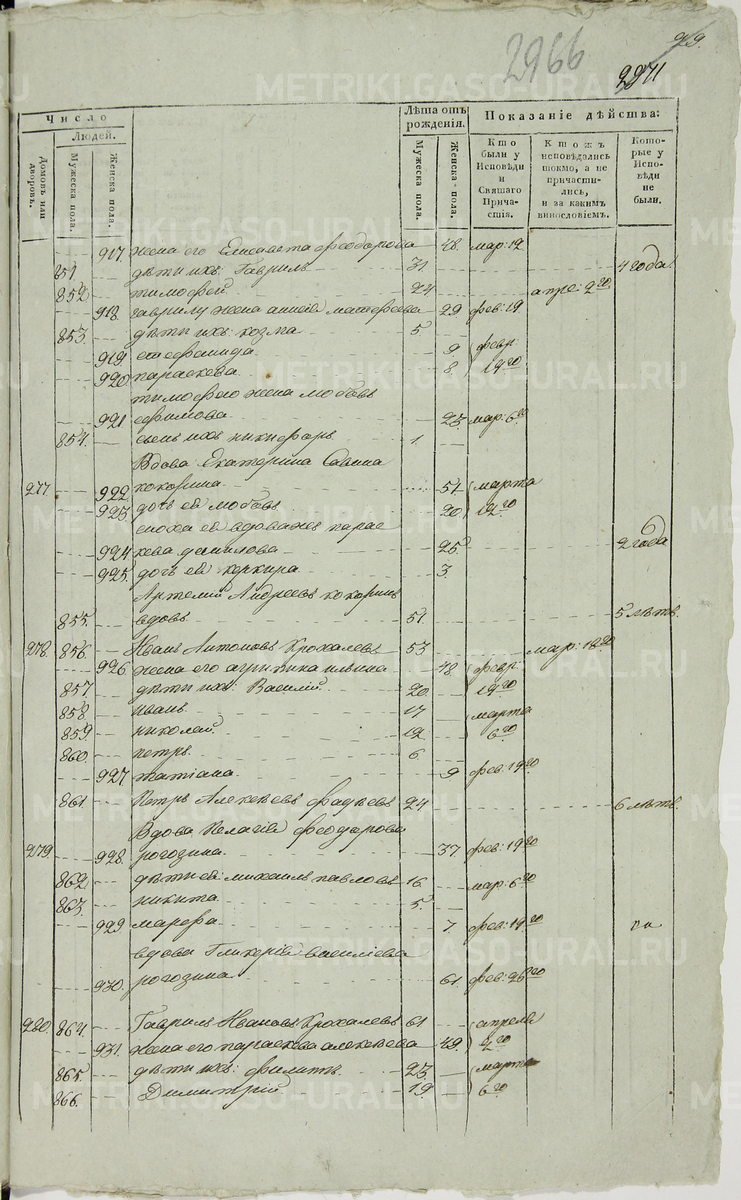 99.
2966
2971
METRIKI.GASO-URAL.RU
Число
Людей.
Домовъ или дворовъ.
Мужеска пола.
Женска пола.
Лѣта отъ рожденія.
Мужеска пола.
Женска пола.
Показаніе дѣйства:
Кто были у Исповѣди и Святаго Причастія.
Ктожъ исповѣдались токмо, а не причастились, и за какимъ винословіемъ.
Которые у Исповѣди не были.
917 жена его Елисавета Феодорова 48. мар: 12
851 дѣти ихъ: Гавриилъ 31 4 года.
852 тимофей 24 апре: 2го
918. гаврилу жена анисiя матфеева 29 фев: 19
853 дѣти ихъ козма 5
919 9 февр:
920 параскева 8 19го
тимофею жена любовь
921 ефимова 23 мар: 6го
854 сынъ ихъ никифоръ 1
Вдова Екатерина Савина
277 922 кокорина 51 марта
923 дочь ей любовь 20 12го
сноха ей вдова парас
924 кева данилова 25 2 года
925 дочь ей 3.
Артемий Андреевъ кокоринъ
855 вдовъ 51 5 лѣтъ.
278 856 Иванъ Антоновъ Крохалевъ 53 мар: 12го
926 жена его ильина 48 февр:
857 дѣти ихъ: Василiй 20 19го
858 иванъ 17 марта
859 николай 12 6го
860 петръ 6
927 татiана 9 фев: 19го
861 Петръ Алексѣевъ фадѣевъ 24 6 лѣтъ.
Вдова Пелагiя феодорова
279 928. рогозина 37 фев: 19го
862 дѣти ей: михаилъ павловъ 16 мар: 6го
863 никита 5
929 марфа 7 фев: 19го
вдова Гликерiя василiева
930. рогозина 61 фев: 26го
280 864 Гавриилъ Ивановъ Крохалевъ 61 апреля
931 жена его параскева алексѣева 49 2го
865 дѣти ихъ: филиппъ 23 марта
866. Димитрiй 19 6го